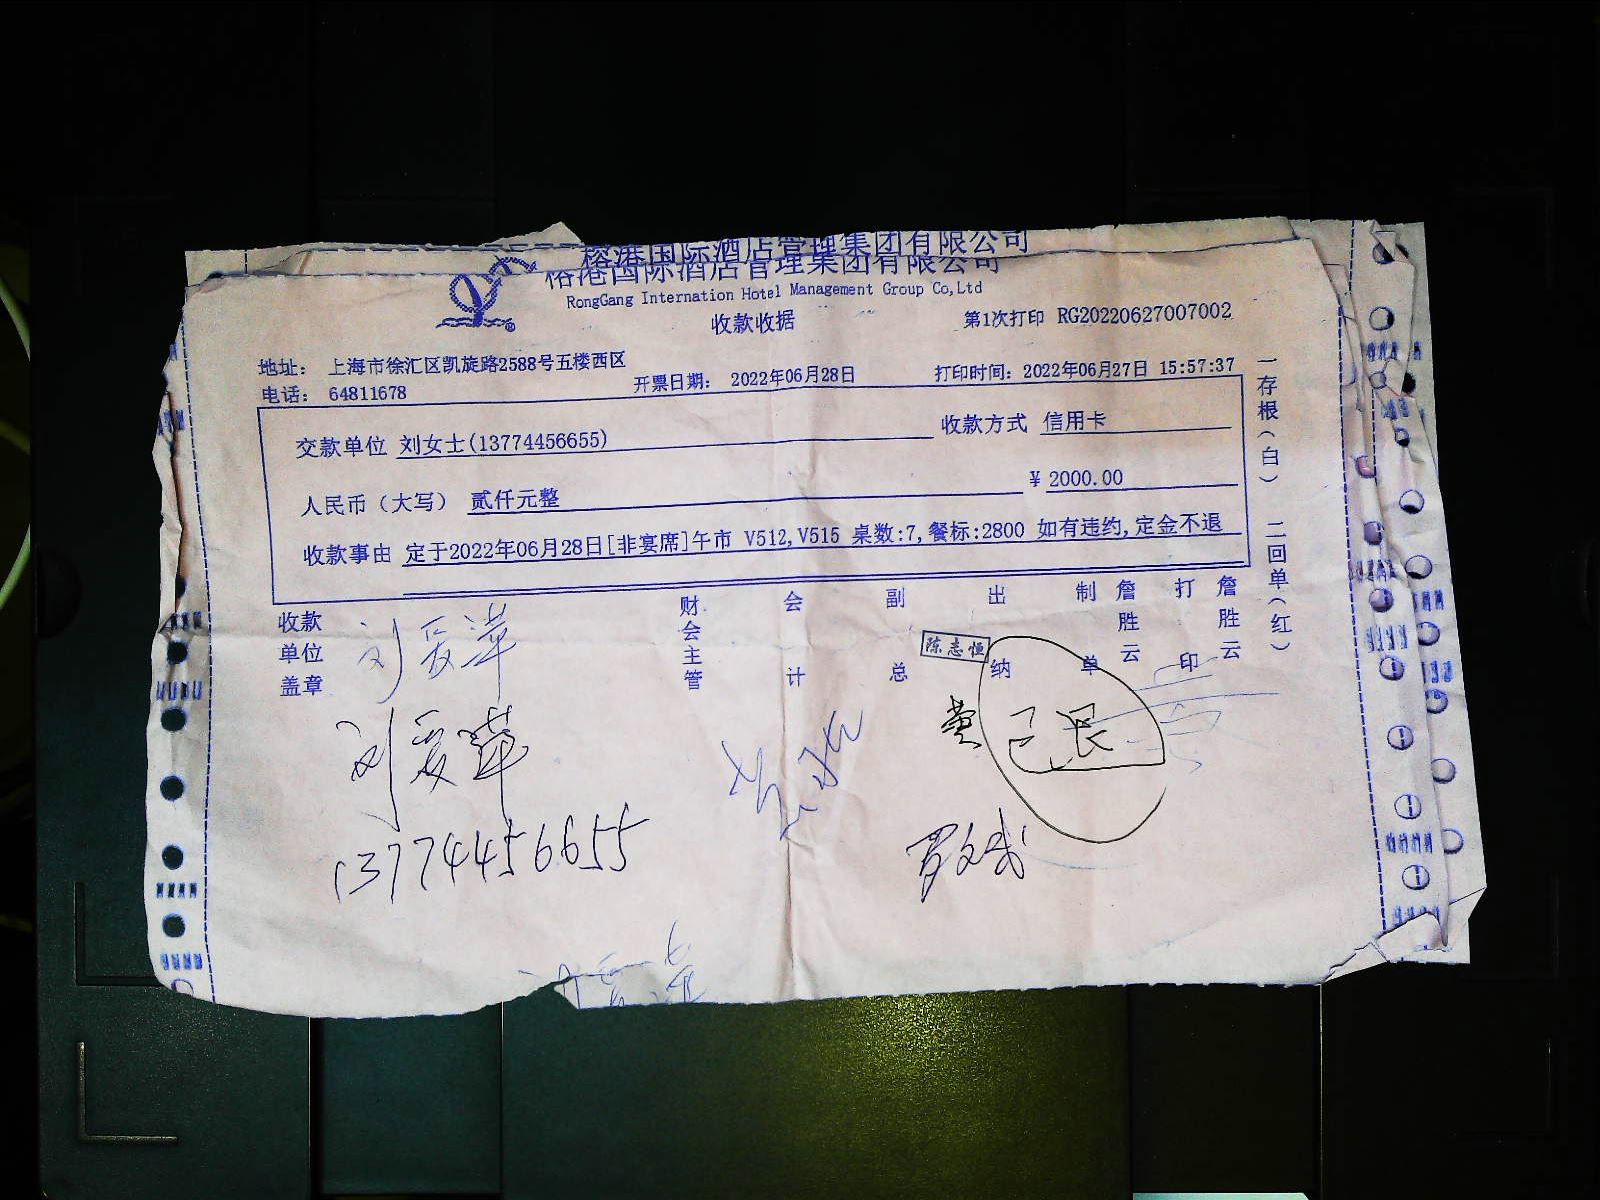 榕港国际酒店管理集团有限公司
榕港国际酒店管理集团有限公司
RongGang Internation Hotel Management Group Co,Ltd
收款收据
第1次打印 RG20220627007002
地址： 上海市徐汇区凯旋路2588号五楼西区
电话： 64811678
开票日期： 2022年06月28日
打印时间：2022年06月27日 15:57:37
交款单位 刘女士(13774456655)
收款方式 信用卡
人民币（大写） 贰仟元整
¥ 2000.00
收款事由 定于2022年06月28日[非宴席]午市 V512,V515 桌数:7,餐标:2800 如有违约,定金不退
一存根（白） 二回单（红）
收款单位盖章
财会主管
会计
副总
出纳
制单
詹胜云
打印
詹胜云
陈志恒
刘爱萍
刘爱萍
13774456655